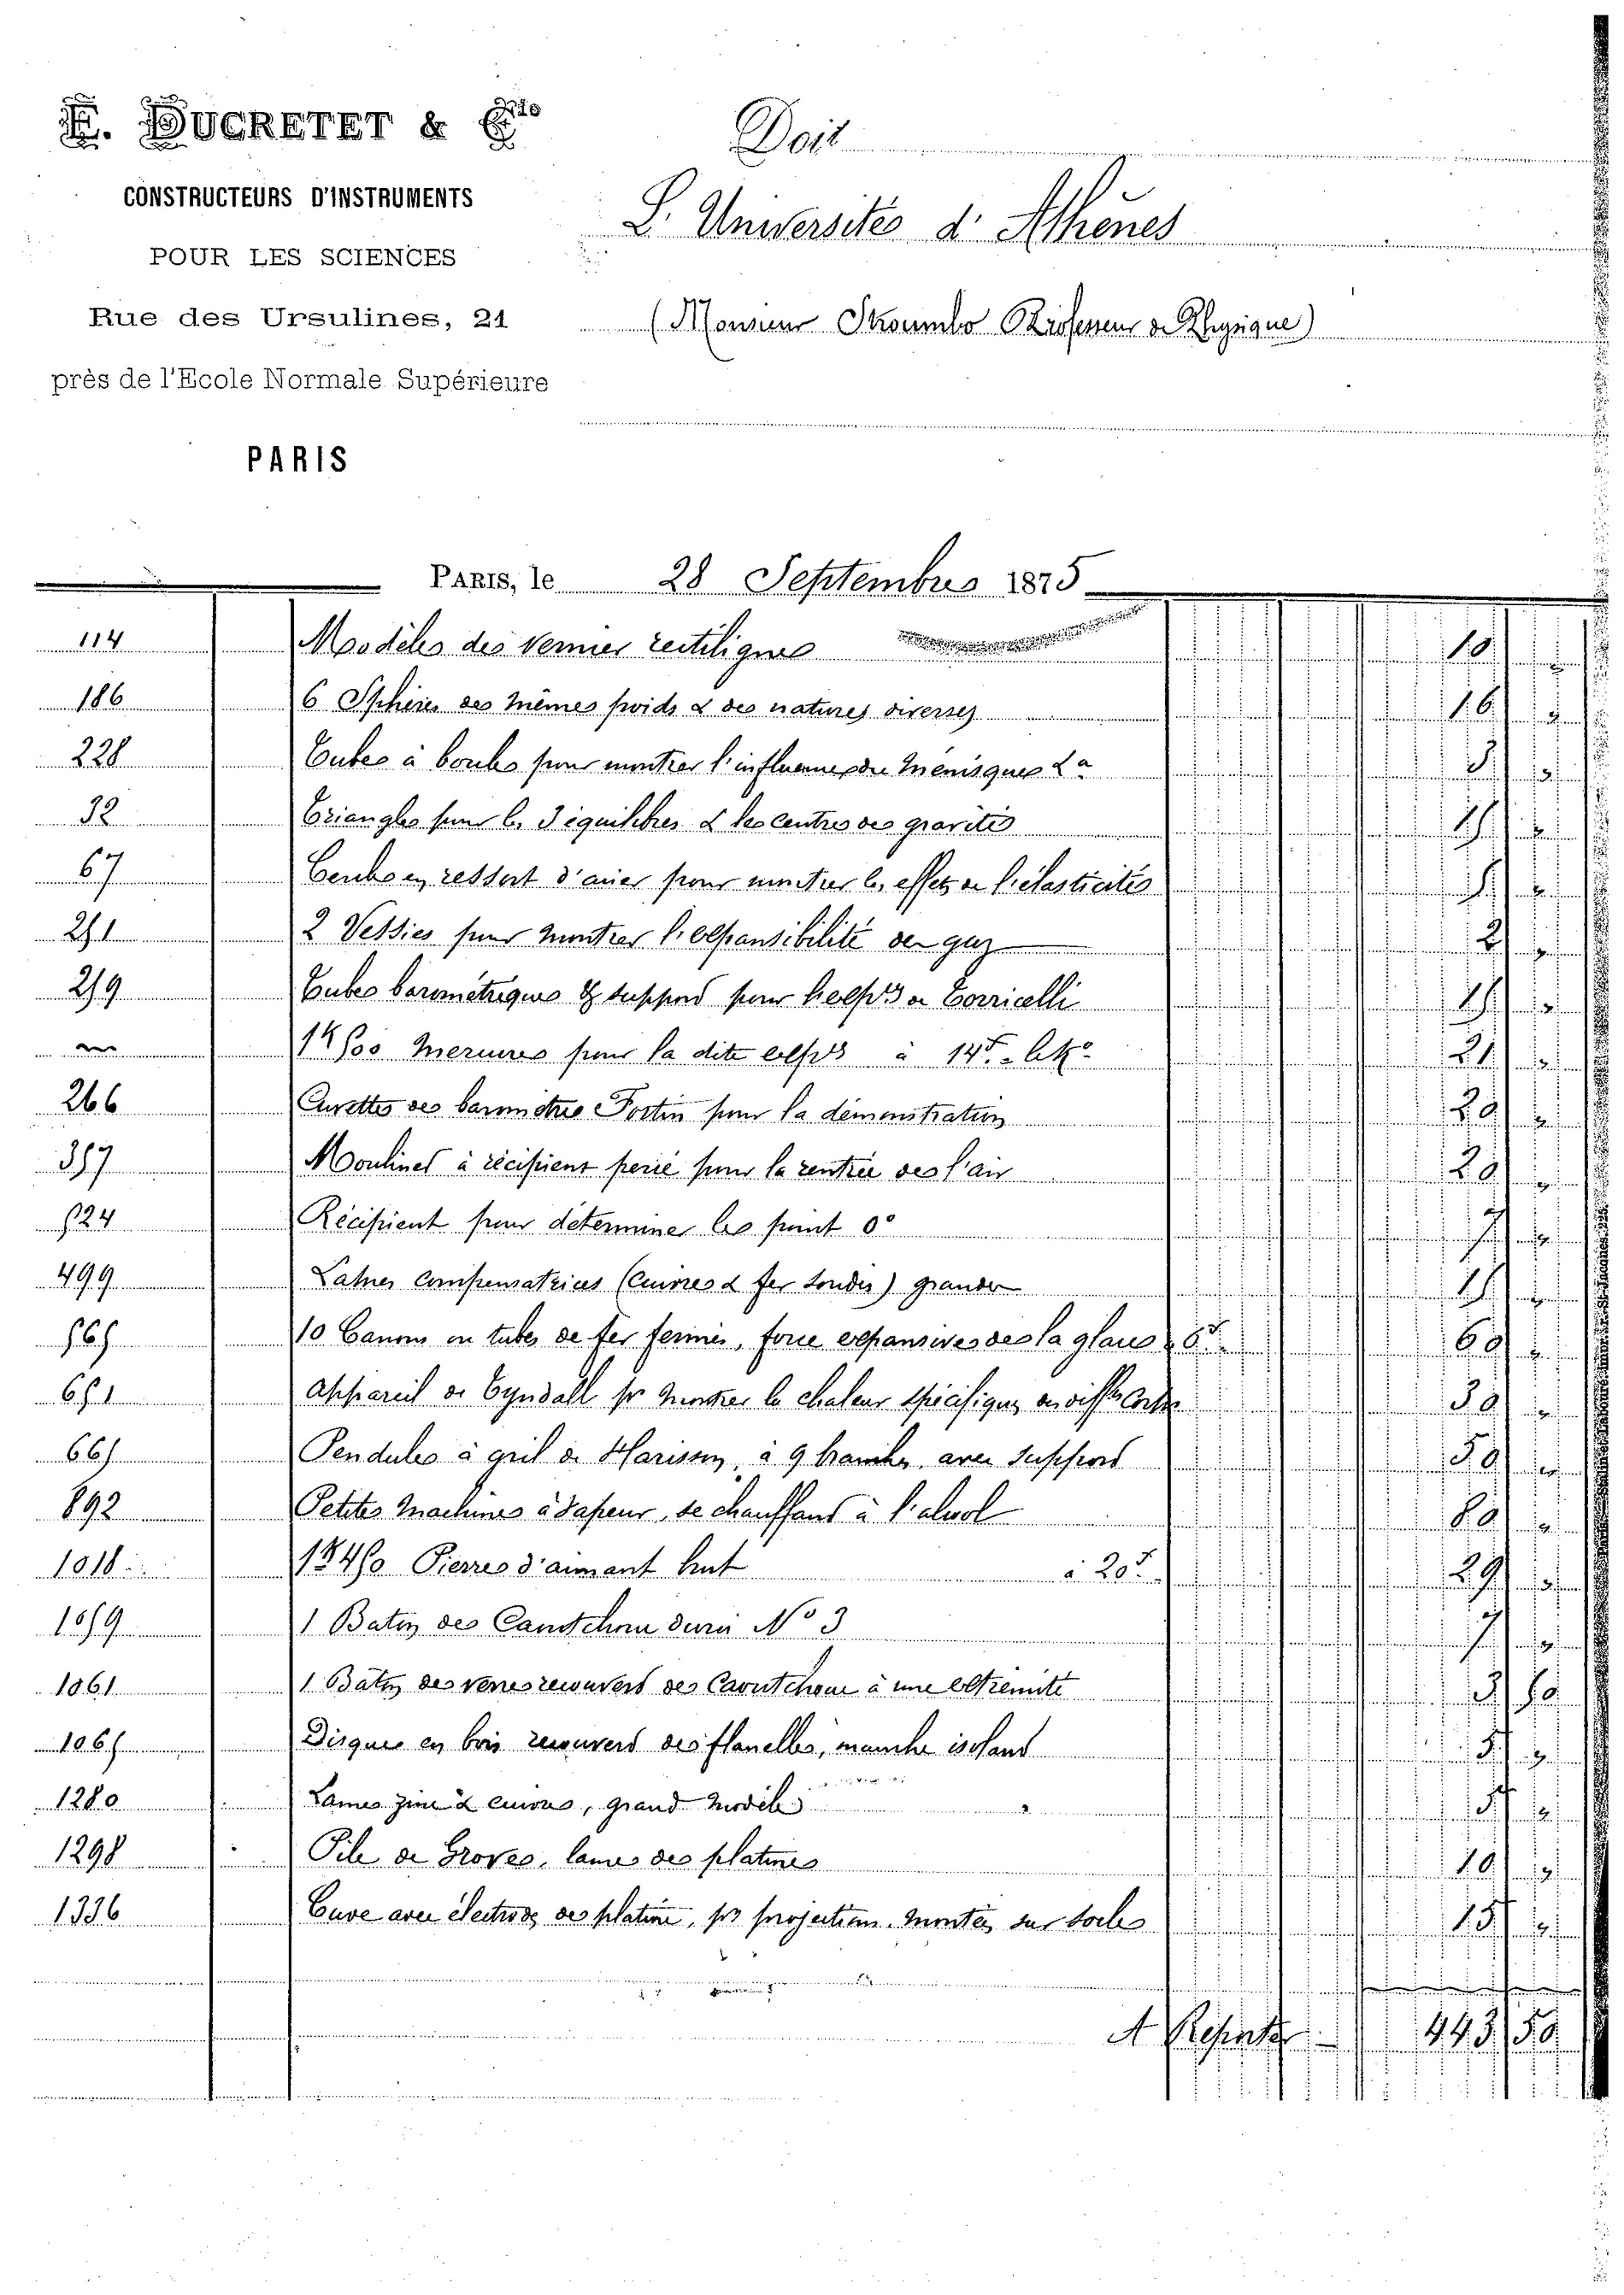 E. DUCRETET & Cie
CONSTRUCTEURS D'INSTRUMENTS
POUR LES SCIENCES
Rue des Ursulines, 21
près de l'Ecole Normale Supérieure
PARIS
Doit
L'Université d'Athènes
(Monsieur Professeur de Physique)
PARIS, le 28 Septembre 1875
114 Modèle de Vernier rectiligne 10 "
186 6 Sphères de même poids & de natures diverses 16 "
228 Tube à boule pour montrer l'influence du Ménisque
32 Triangle pour l'équilibre & le centre de gravité
67 Cercle en ressort d'acier pour montrer les effets de l'élasticité
251 2 Vessies pour montrer l'expansibilité des gaz 2 "
259 Tube barométrique & support pour l'expce de Torricelli
1K500 Mercure pour la dite expce à 14f le Ko 21 "
266 Cuvette de baromètre Fortin pour la démonstration 20 "
357 Moulinet à récipient percé pour la rentrée de l'air 20 "
524 Récipient pour déterminer le point 0° 7 "
499 Lames compensatrices (Cuivre & fer soudés) grandes
565 10 Canons en tube de fer fermés, force expansive de la glace à 6f 60 "
651 Appareil de Tyndall pr montrer la chaleur spécifique de différents Corps 30 "
665 Pendule à gril de Harison, à 9 branches avec support 50 "
892 Petite Machine à Vapeur, se chauffant à l'alcool 80 "
1018 1K450 Pierre d'aimant brut à 20f 29 "
1059 1 Baton de Caoutchouc durci No 3 7 "
1061 1 Bâton de verre recouvert de Caoutchouc à une extrémité 3 50
1065 Disque en bois recouvert de flanelle, manche isolant
1280 Lames zinc & cuivre, grand modèle
1298 Pile de Grove, lame de platine 10 "
1336 Cuve avec électrodes de platine, pr projection, montée sur socle 15 "
A Reporter 443 50